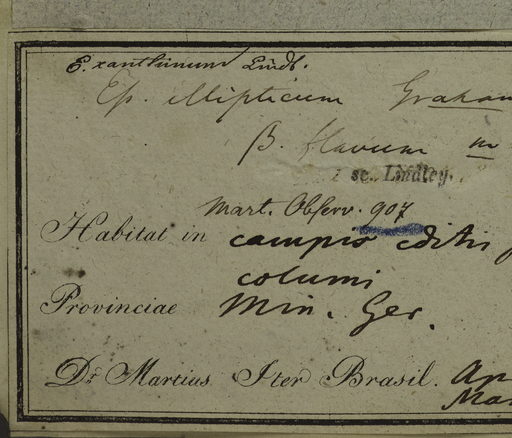 E. xanthinum Lindl.
Ep. ellipticum Graham
β. flavum m
se. Lindley.
Mart. Observ. 907
Habitat in campis editis
columi
Provinciae Min. Ger.
Dr. Martius Iter Brasil. Ap
Mar